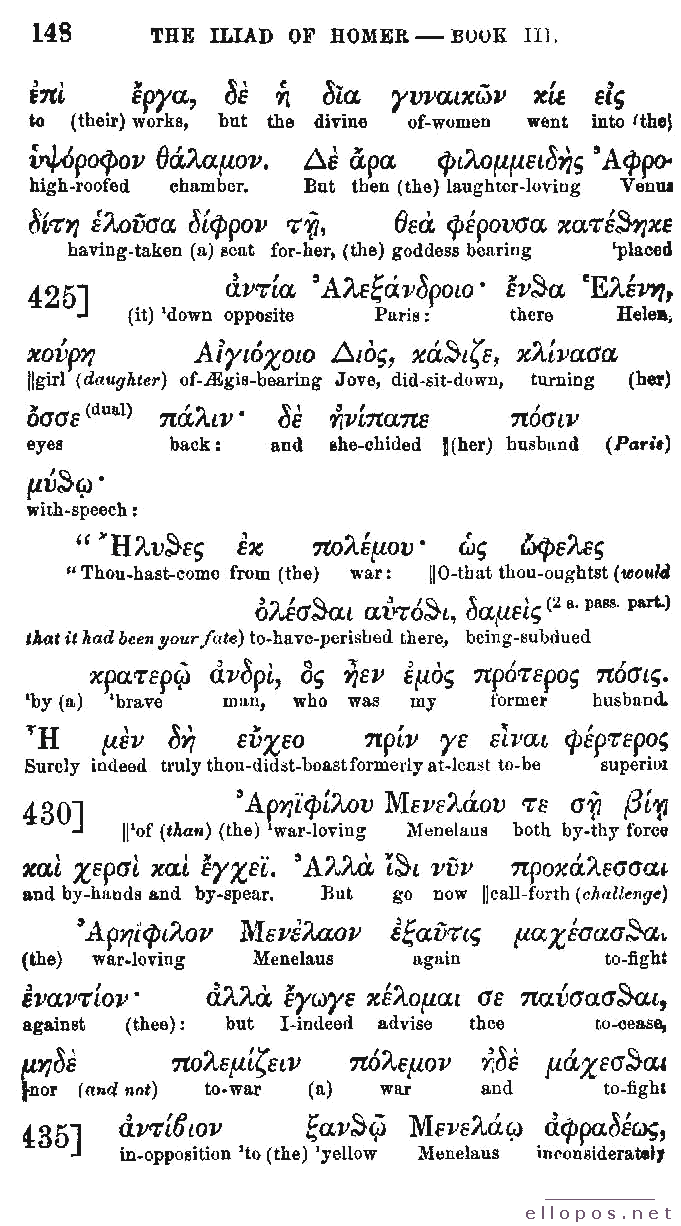 148 THE ILIAD OF HOMER — BOOK III.
ἐπὶ ἔργα, δὲ ἡ δῖα γυναικῶν κίε εἰς
to (their) works, but the divine of-women went into (the)
ὑψόροφον θάλαμον. Δὲ ἄρα φιλομμειδὴς Ἀφρο-
high-roofed chamber. But then (the) laughter-loving Venus
δίτη ἑλοῦσα δίφρον τῇ, θεὰ φέρουσα κατέθηκε
having-taken (a) seat for-her, (the) goddess bearing 'placed
425] ἀντία Ἀλεξάνδροιο· ἔνθα Ἑλένη,
(it) 'down opposite Paris: there Helen,
κούρη Αἰγιόχοιο Διὸς, κάθιζε, κλίνασα
||girl (daughter) of-Ægis-bearing Jove, did-sit-down, turning (her)
ὄσσε (dual) πάλιν· δὲ ἠνίπαπε πόσιν
eyes back: and she-chided ||(her) husband (Paris)
μύθῳ·
with-speech:
“Ἤλυθες ἐκ πολέμου· ὡς ὤφελες
“Thou-hast-come from (the) war: ||O-that thou-oughtst (would
ὀλέσθαι αὐτόθι, δαμεὶς (2 a. pass. part.)
that it had been your fate) to-have-perished there, being-subdued
κρατερῷ ἀνδρὶ, ὃς ἦεν ἐμὸς πρότερος πόσις.
'by (a) 'brave man, who was my former husband.
Ἦ μὲν δὴ εὔχεο πρίν γε εἶναι φέρτερος
Surely indeed truly thou-didst-boast formerly at-least to-be superior
430] Ἀρηϊφίλου Μενελάου τε σῇ βίῃ
||'of (than) (the) 'war-loving Menelaus both by-thy force
καὶ χερσὶ καὶ ἔγχεϊ. Ἀλλὰ ἴθι νῦν προκάλεσσαι
and by-hands and by-spear. But go now ||call-forth (challenge)
Ἀρηΐφιλον Μενέλαον ἐξαῦτις μαχέσασθαι
(the) war-loving Menelaus again to-fight
ἐναντίον· ἀλλὰ ἔγωγε κέλομαι σε παύσασθαι,
against (thee): but I-indeed advise thee to-cease,
μηδὲ πολεμίζειν πόλεμον ἠδὲ μάχεσθαι
||nor (and not) to-war (a) war and to-fight
435] ἀντίβιον ξανθῷ Μενελάῳ ἀφραδέως,
in-opposition 'to (the) 'yellow Menelaus inconsiderately
ellopos.net